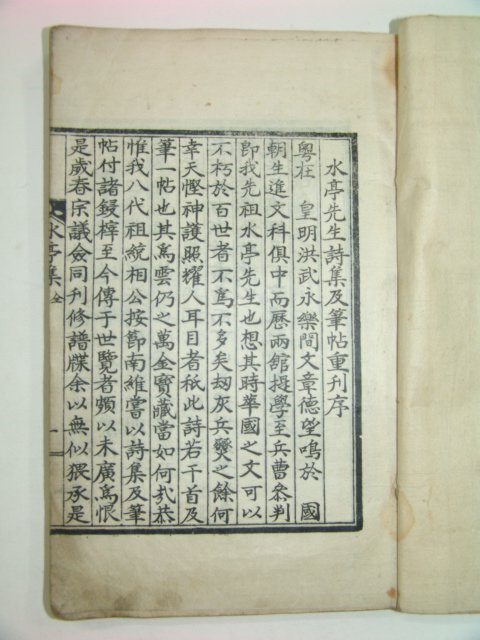 水亭先生詩集及筆帖重刊序
粤在 皇明洪武永樂間文章德望鳴於 國
朝生進文科俱中而歷兩館提學至兵曹叅判
即我先祖水亭先生也想其時華國之文可以
不朽於百世者不爲不多矣刼灰兵燹之餘何
幸天慳神護照耀人耳目者秪此詩若干首及
筆一帖也其爲雲仍之萬金寶藏當如何式恭
惟我八代祖統相公按節南維嘗以詩集及筆
帖付諸鋟梓至今傳于世覽者頗以未廣爲恨
是歲春宗議僉同刊修譜牒余以無似猥承是
水亭集全 一